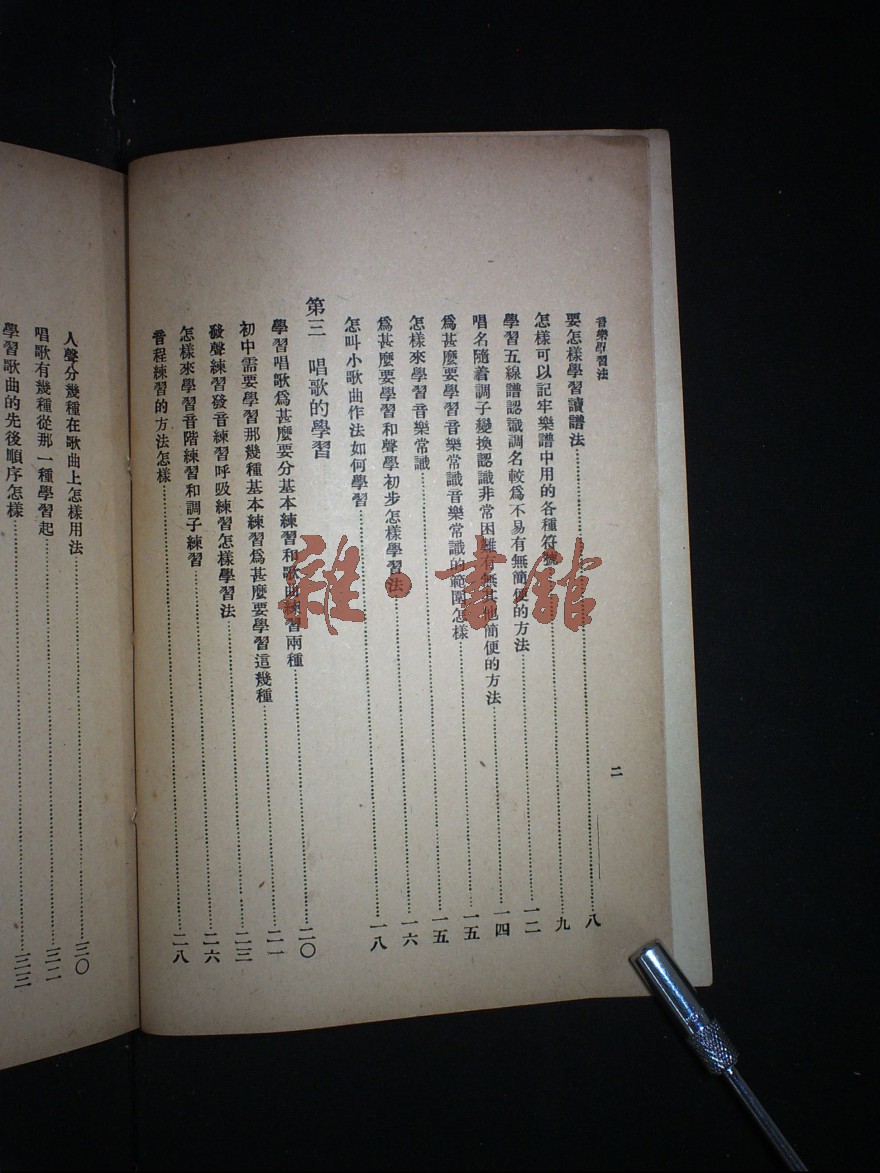 音樂學習法 二
要怎樣學習讀譜法……八
怎樣可以記牢樂譜中用的各種符號……九
學習五線譜認識調名較爲不易有無簡便的方法……一二
唱名隨着調子變換認識非常困難有無其他簡便的方法……一四
爲甚麼要學習音樂常識音樂常識的範圍怎樣……一五
怎樣來學習音樂常識……一五
爲甚麼要學習和聲學初步怎樣學習法……一六
怎叫小歌曲作法如何學習……一八
第三 唱歌的學習
學習唱歌爲甚麼要分基本練習和歌曲練習兩種……二〇
初中需要學習那幾種基本練習爲甚麼要學習這幾種……二一
發聲練習發音練習呼吸練習怎樣學習法……二三
怎樣來學習音階練習和調子練習……二六
音程練習的方法怎樣……二八
人聲分幾種在歌曲上怎樣用法……三〇
唱歌有幾種從那一種學習起……三二
學習歌曲的先後順序怎樣……三三
雜·書館